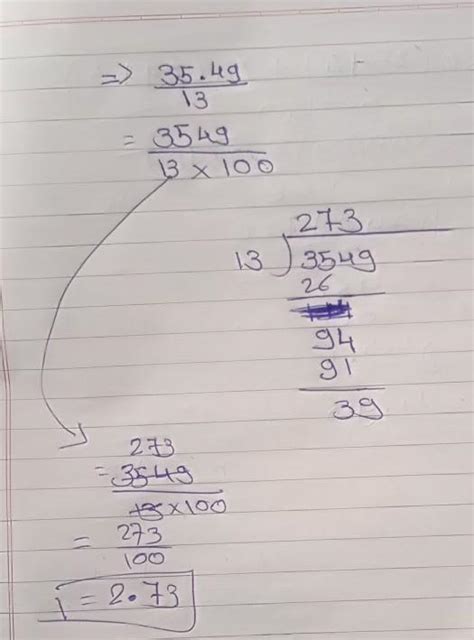 => 35.49
13
= 3549
13 × 100
273
13 ) 3549
26
94
91
39
273
= 3549
13 ×100
= 273
100
= 2.73